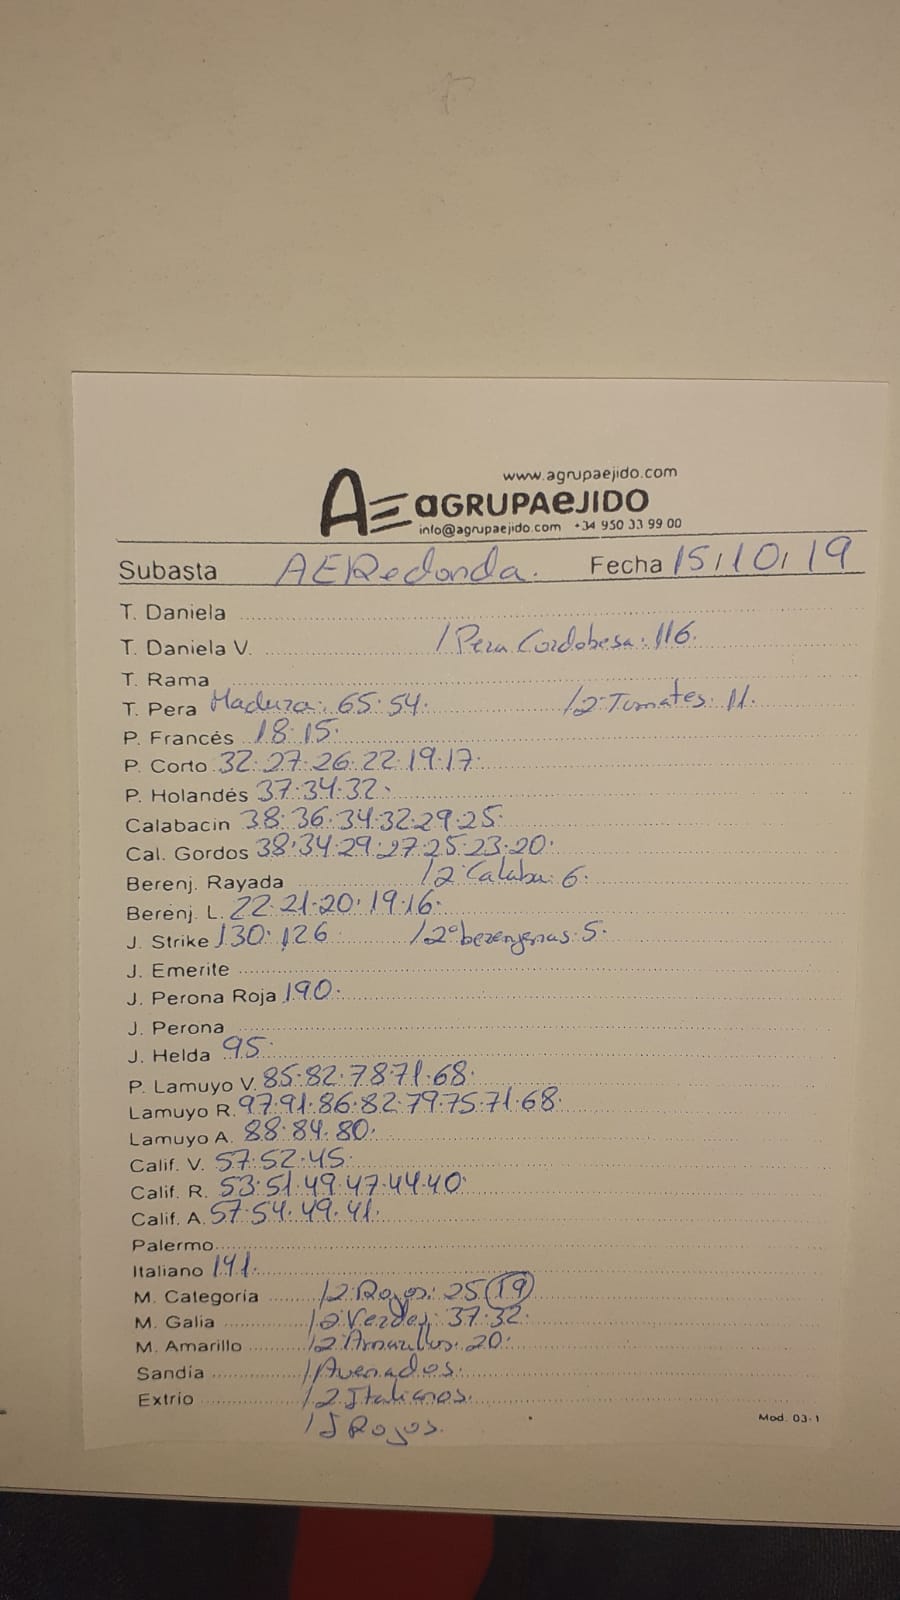 www.agrupaejido.com
AE aGRUPAeJIDO
info@agrupaejido.com +34 950 33 99 00
Subasta AERedonda. Fecha 15/10/19
T. Daniela
T. Daniela V. / Pera Cordobesa: 116.
T. Rama
T. Pera Madura: 65·54. /2ª Tomates: 11.
P. Francés 18·15.
P. Corto 32·27·26·22·19·17.
P. Holandés 37·34·32.
Calabacin 38·36·34·32·29·25.
Cal. Gordos 38·34·29·27·25·23·20.
Berenj. Rayada /2ª Calaba: 6.
Berenj. L. 22·21·20·19·16.
J. Strike 130·126 /2ª berenjenas: 5.
J. Emerite
J. Perona Roja 190.
J. Perona
J. Helda 95.
P. Lamuyo V. 85·82·78·71·68.
Lamuyo R. 97·91·86·82·79·75·71·68.
Lamuyo A. 88·84·80.
Calif. V. 57·52·45.
Calif. R. 53·51·49·47·44·40.
Calif. A. 57·54·49·41.
Palermo
Italiano 141.
M. Categoría /2ª Rojos: 25 (19)
M. Galia /2ª Verdes: 37·32.
M. Amarillo /2ª Amarillos: 20.
Sandía / Asenados.
Extrio /2 Italianos.
/ J Rojos.
Mod. 03-1